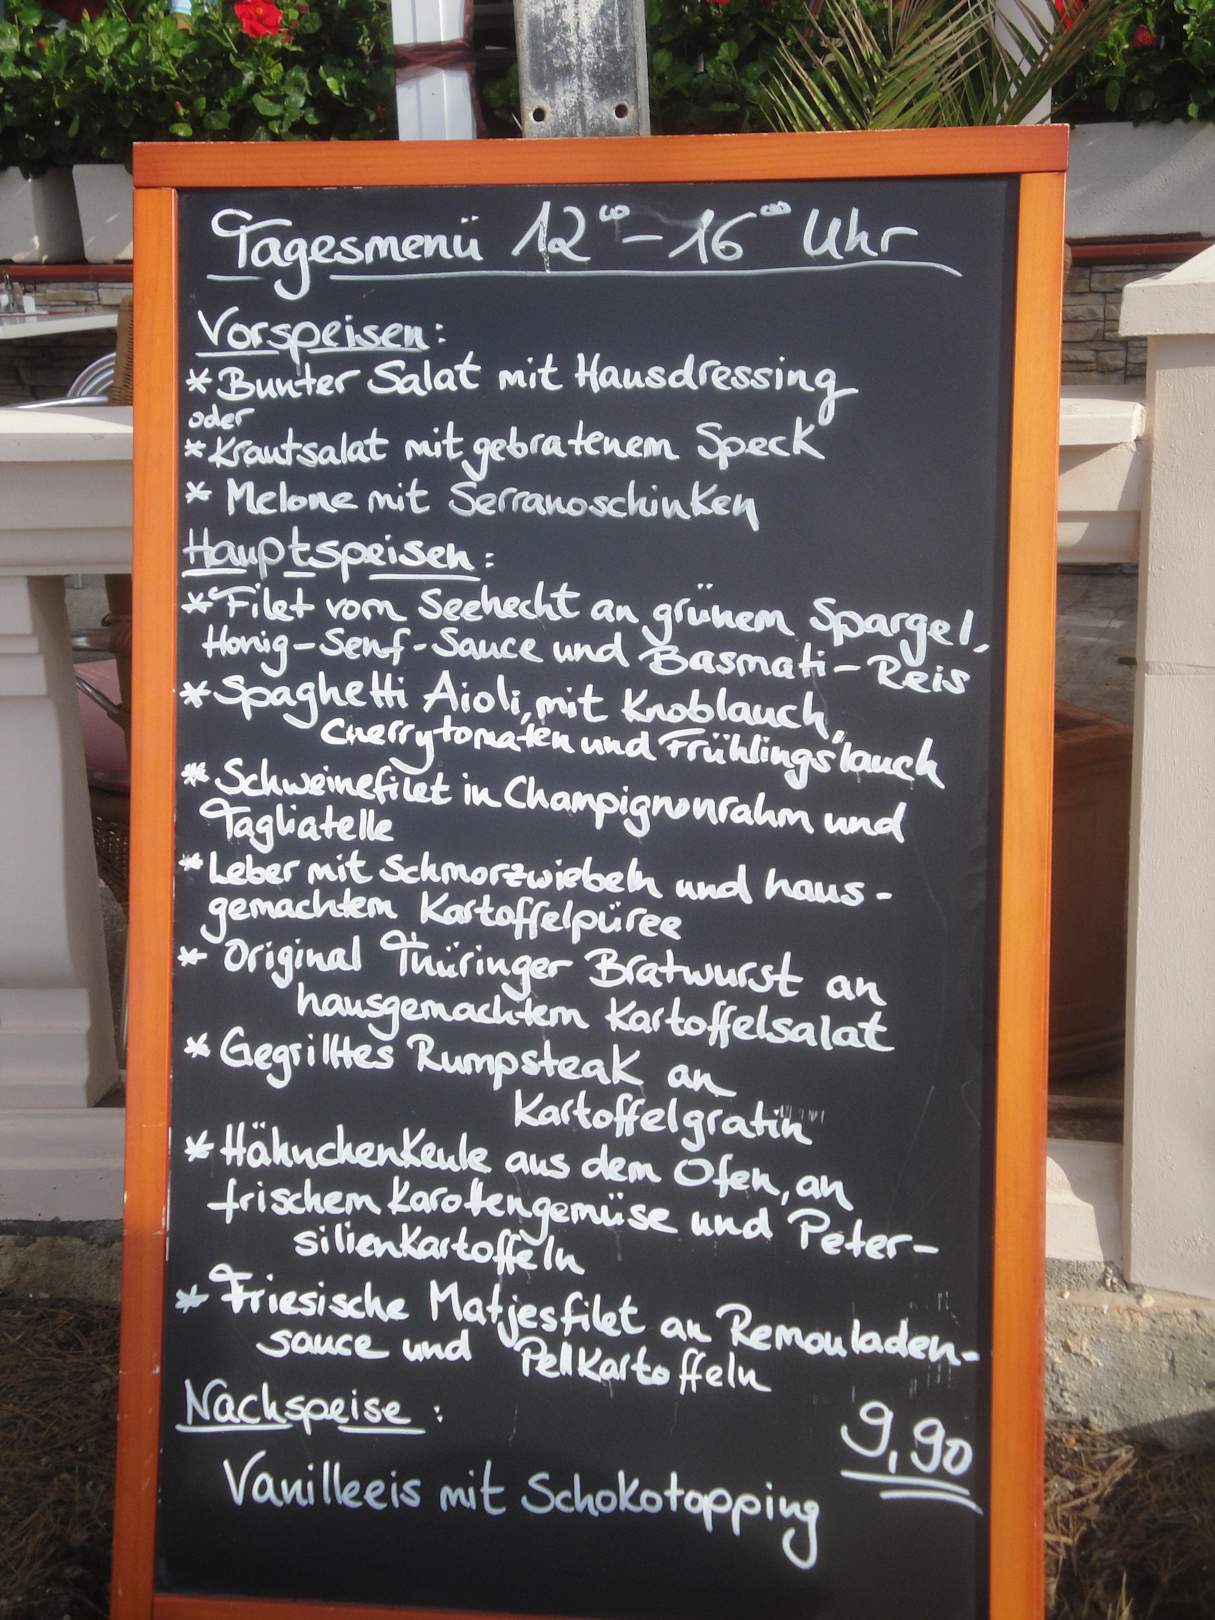 Tagesmenü 12⁰⁰ – 16⁰⁰ Uhr
Vorspeisen:
* Bunter Salat mit Hausdressing
oder
* Krautsalat mit gebratenem Speck
* Melone mit Serranoschinken
Hauptspeisen:
* Filet vom Seehecht an grünem Spargel,
Honig-Senf-Sauce und Basmati-Reis
* Spaghetti Aioli, mit Knoblauch,
Cherrytomaten und Frühlingslauch
* Schweinefilet in Champignonrahm und
Tagliatelle
* Leber mit Schmorzwiebeln und haus-
gemachtem Kartoffelpüree
* Original Thüringer Bratwurst an
hausgemachtem Kartoffelsalat
* Gegrilltes Rumpsteak an
Kartoffelgratin
* Hähnchenkeule aus dem Ofen, an
frischem Karottengemüse und Peter-
silienkartoffeln
* Friesische Matjesfilet an Remouladen-
sauce und Pellkartoffeln
Nachspeise:
9,90
Vanilleeis mit Schokotopping